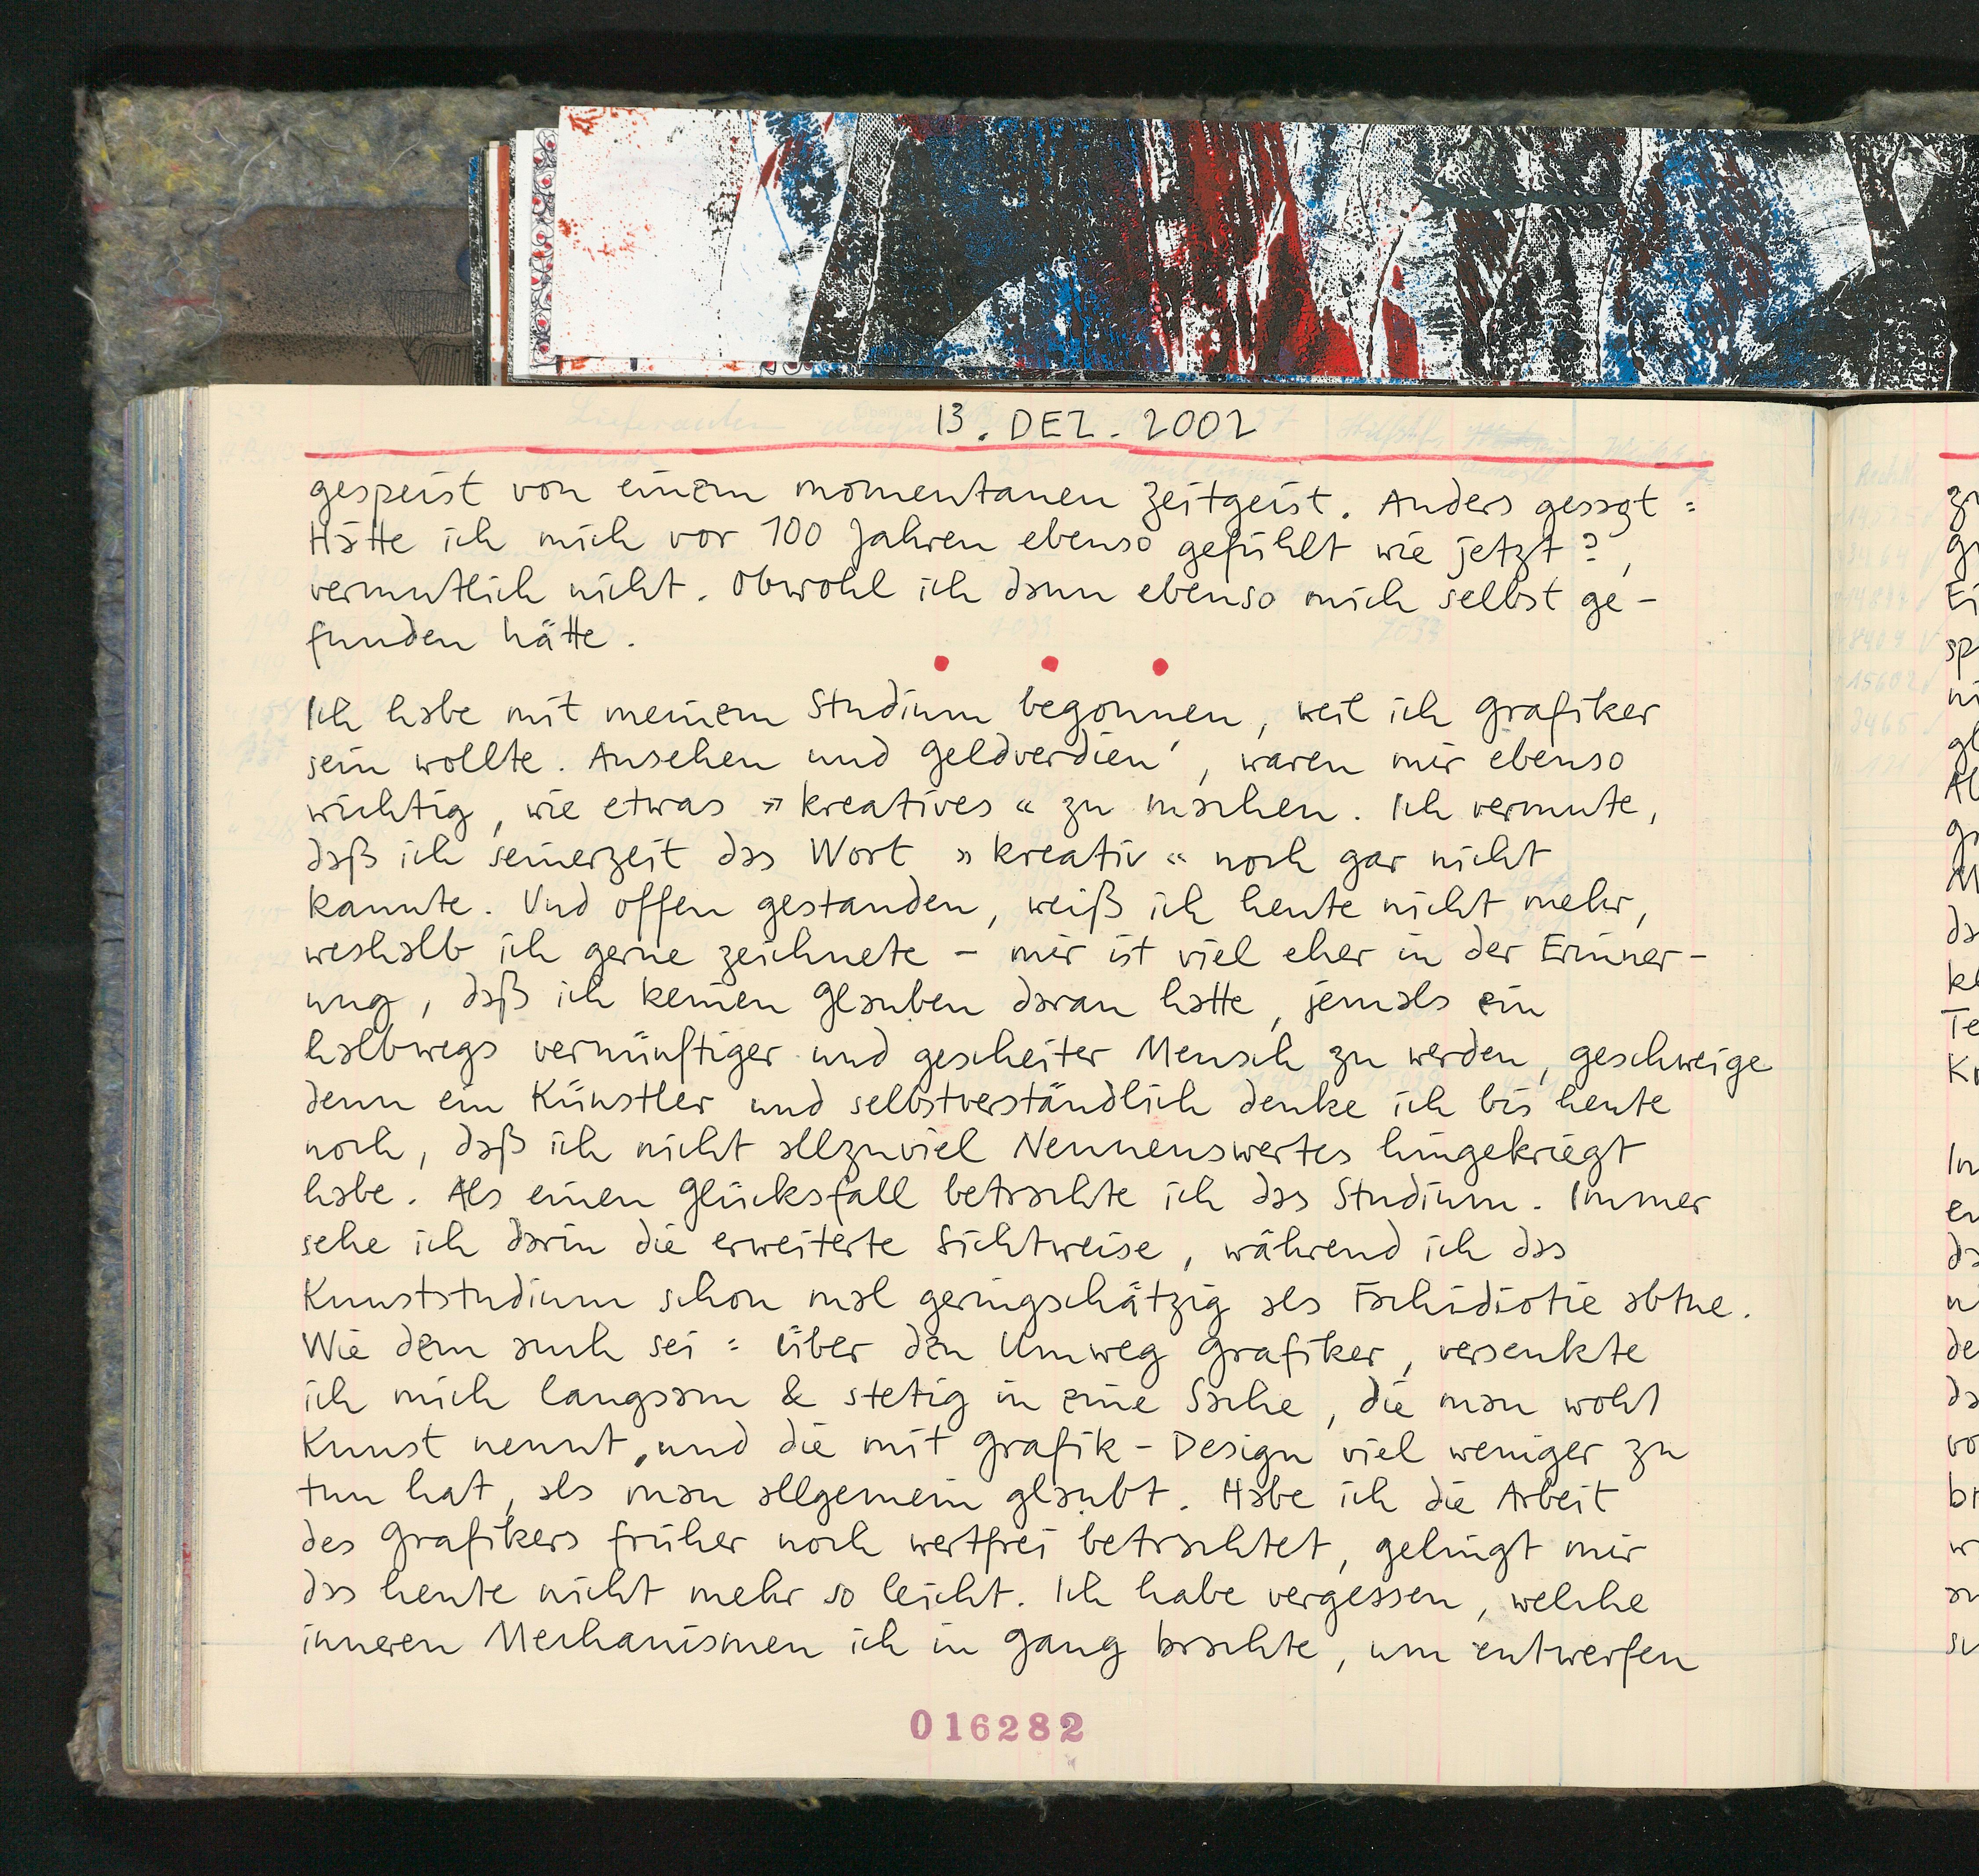 13. DEZ. 2002
gespeist von einem momentanen Zeitgeist. Anders gesagt:
Hätte ich mich vor 100 Jahren ebenso gefühlt wie jetzt?,
vermutlich nicht. Obwohl ich dann ebenso mich selbst ge-
funden hätte.
Ich habe mit meinem Studium begonnen, weil ich Grafiker
sein wollte. Ansehen und Geldverdien', waren mir ebenso
wichtig, wie etwas »kreatives« zu machen. Ich vermute,
daß ich seinerzeit das Wort »kreativ« noch gar nicht
kannte. Und offen gestanden, weiß ich heute nicht mehr,
weshalb ich gerne zeichnete – mir ist viel eher in der Erinner-
ung, daß ich keinen Glauben daran hatte, jemals ein
halbwegs vernünftiger und gescheiter Mensch zu werden, geschweige
denn ein Künstler und selbstverständlich denke ich bis heute
noch, daß ich nicht allzuviel Nennenswertes hingekriegt
habe. Als einen Glücksfall betrachte ich das Studium. Immer
sehe ich darin die erweiterte Sichtweise, während ich das
Kunststudium schon mal geringschätzig als Fachidiotie abtue.
Wie dem auch sei: über den Umweg Grafiker, versenkte
ich mich langsam & stetig in eine Sache, die man wohl
Kunst nennt, und die mit Grafik-Design viel weniger zu
tun hat, als man allgemein glaubt. Habe ich die Arbeit
des Grafikers früher noch wertfrei betrachtet, gelingt mir
das heute nicht mehr so leicht. Ich habe vergessen, welche
inneren Mechanismen ich in Gang brachte, um entwerfen
016282